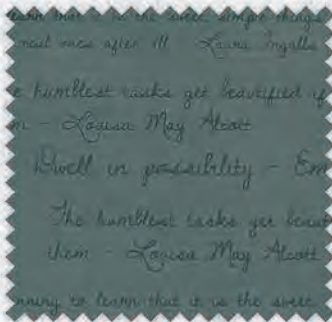 learn that it is the sweet simple things
real ones after all - Laura Ingalls
e humblest tasks get beautified if
m - Louisa May Alcott
Dwell in possibility - Em
The humblest tasks get beaut
them - Louisa May Alcott
nning to learn that it is the sweet